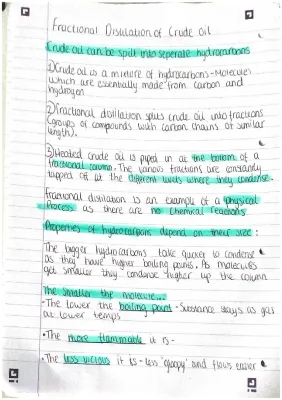 Fractional Distulation of Crude Oil
Crude oil can be spilt into seperate hydrocarbons
1) Crude oil is a mixture of hydrocarbons - Molecules
which are essentially made from carbon and
hydrogen
2) Fractional distillation splits crude oil into fractions
(groups of compounds with carbon chains of similar
length).
3) Heated crude oil is piped in at the bottom of a
fractional column. The various fractions are constantly
tapped off at the different levels where they condense.
Fractional distillation is an example of a physical
process as there are no chemical reactions
Properties of hydrocarbons depend on their size:
The bigger hydrocarbons take quicker to condense
as they have higher boiling points. As molecules
get smaller they condense higher up the column
The smaller the molecule...
- The lower the boiling point - Substance stays as gas
at lower temps
• The more flammable it is -
• The less viscious it is - less 'gloopy' and flows easier